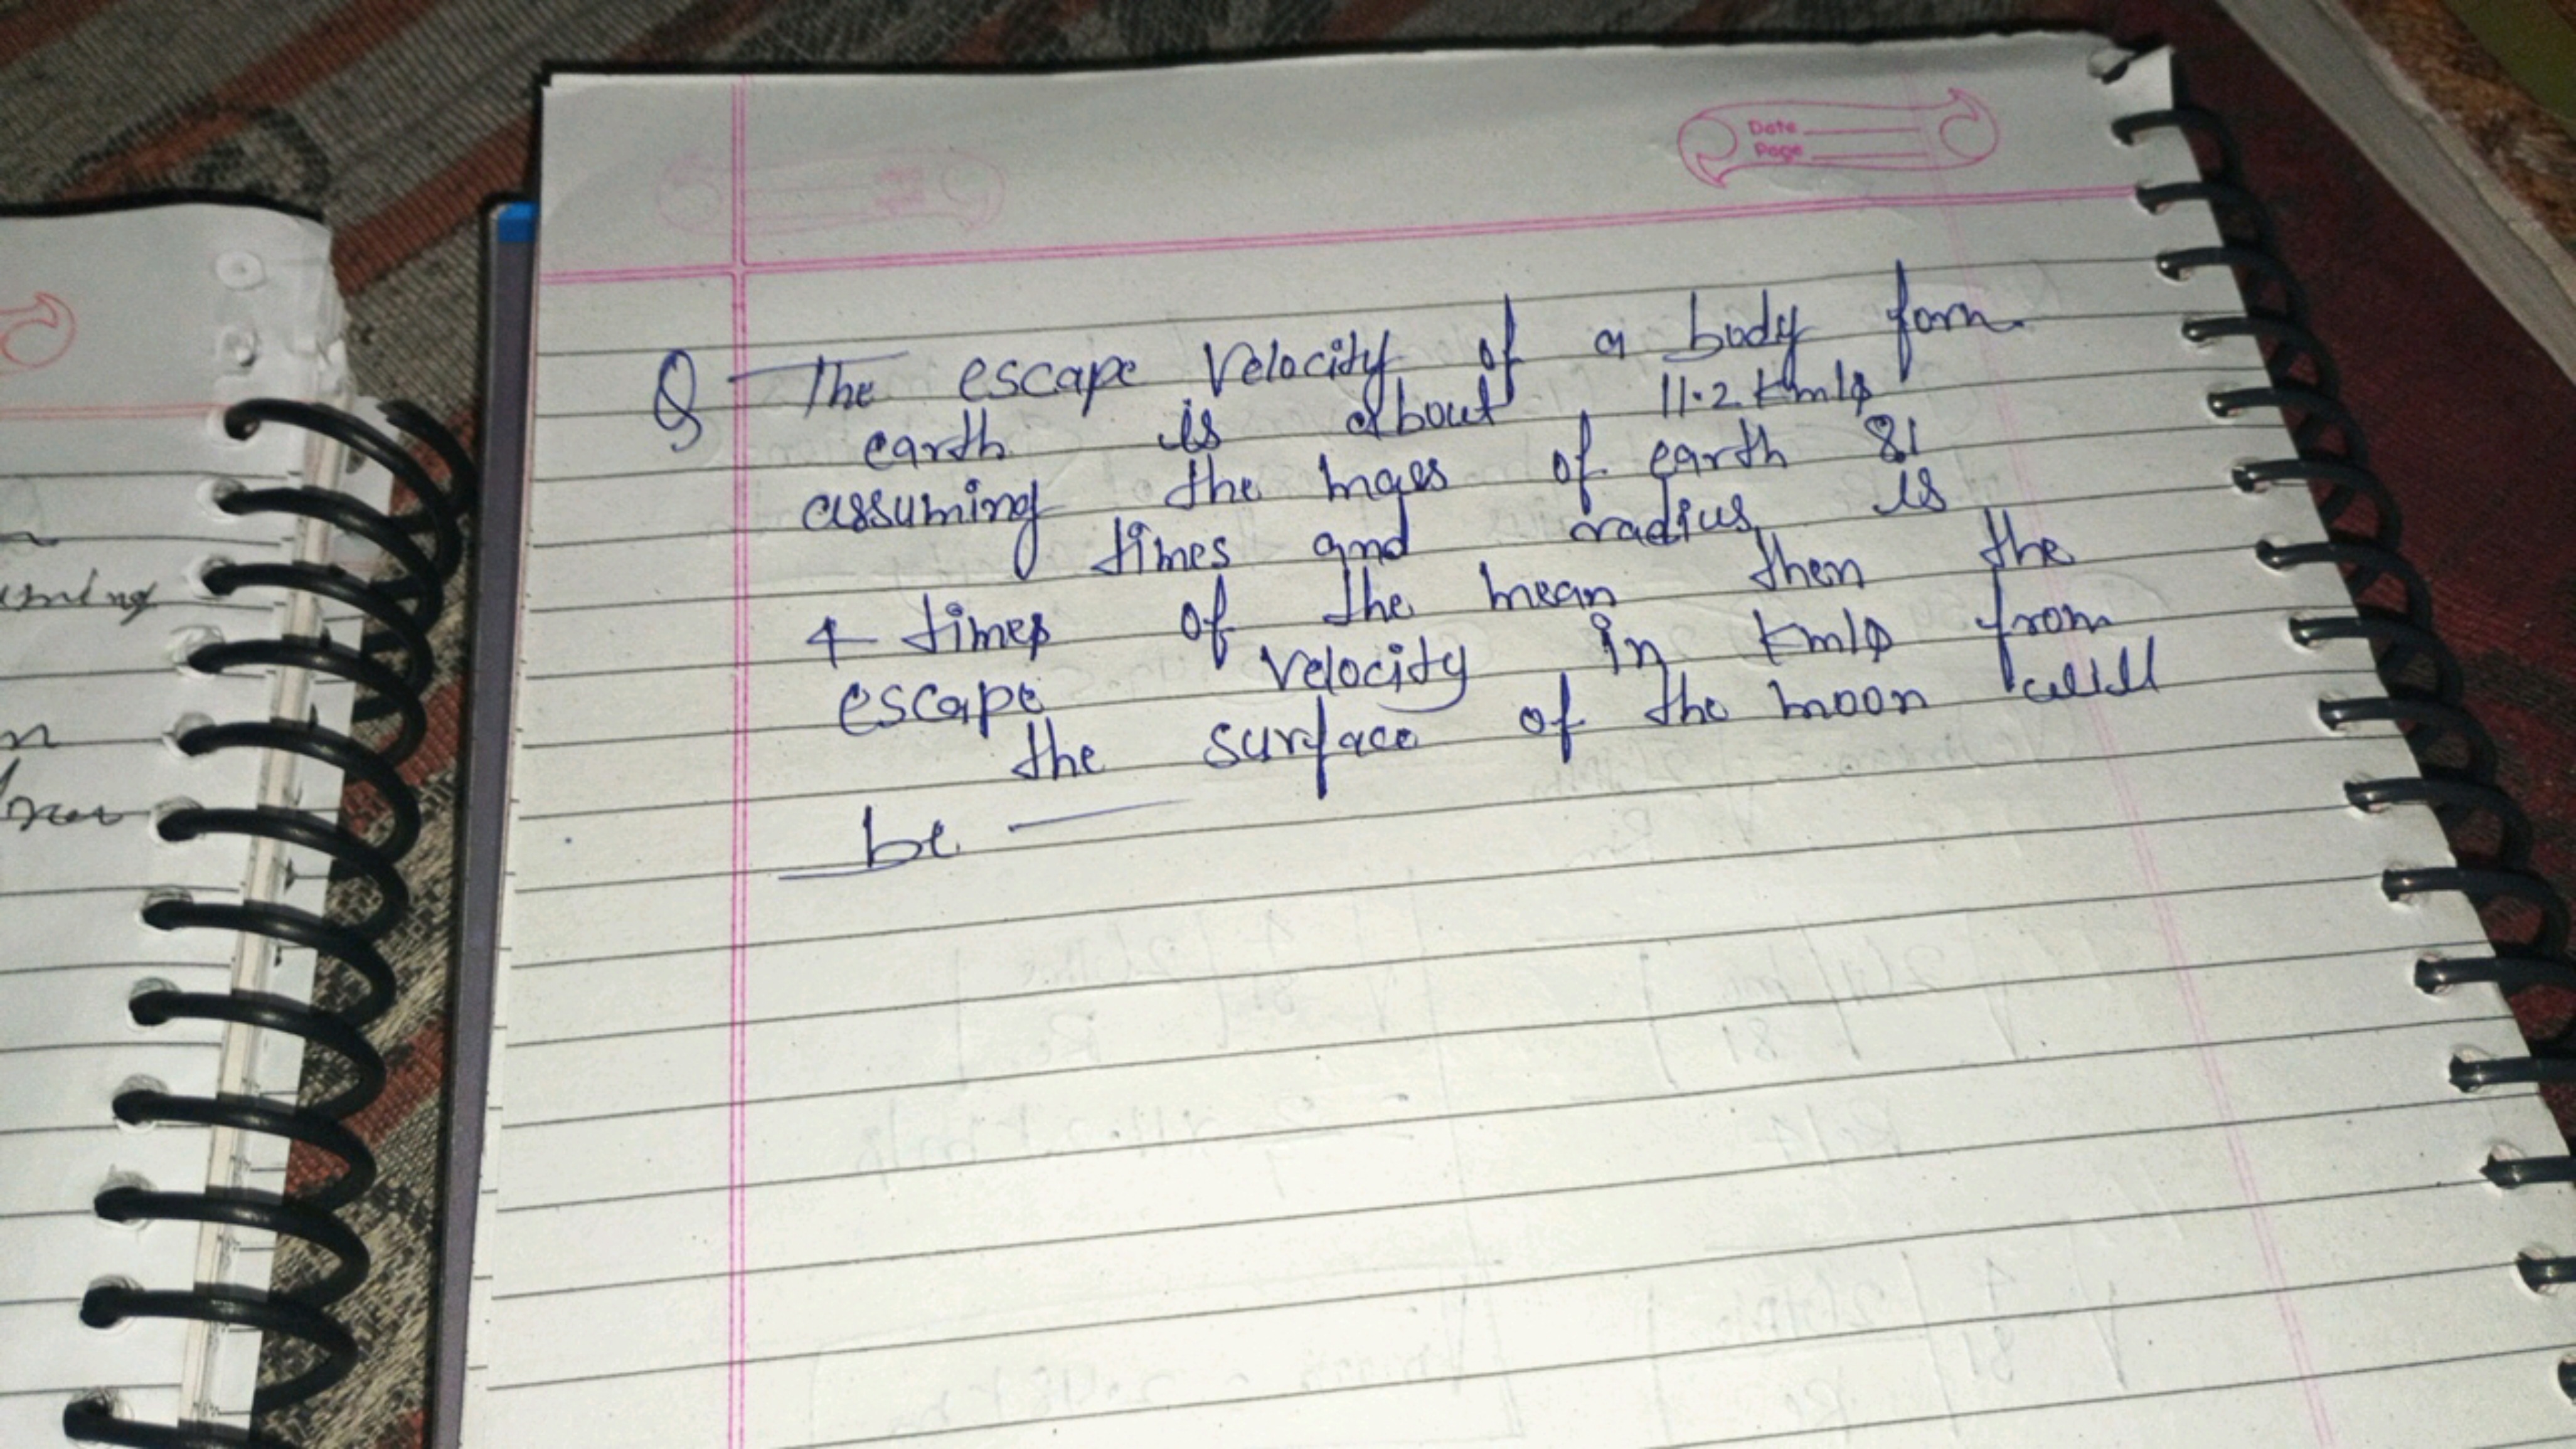 Date
Page
Q The escape Velocity of a body form
earth is about 11.2 km/s
assuming the mass of earth 81
times and radius is
4 times of the mean then the
escape velocity in km/s from
the surface of the moon will
be